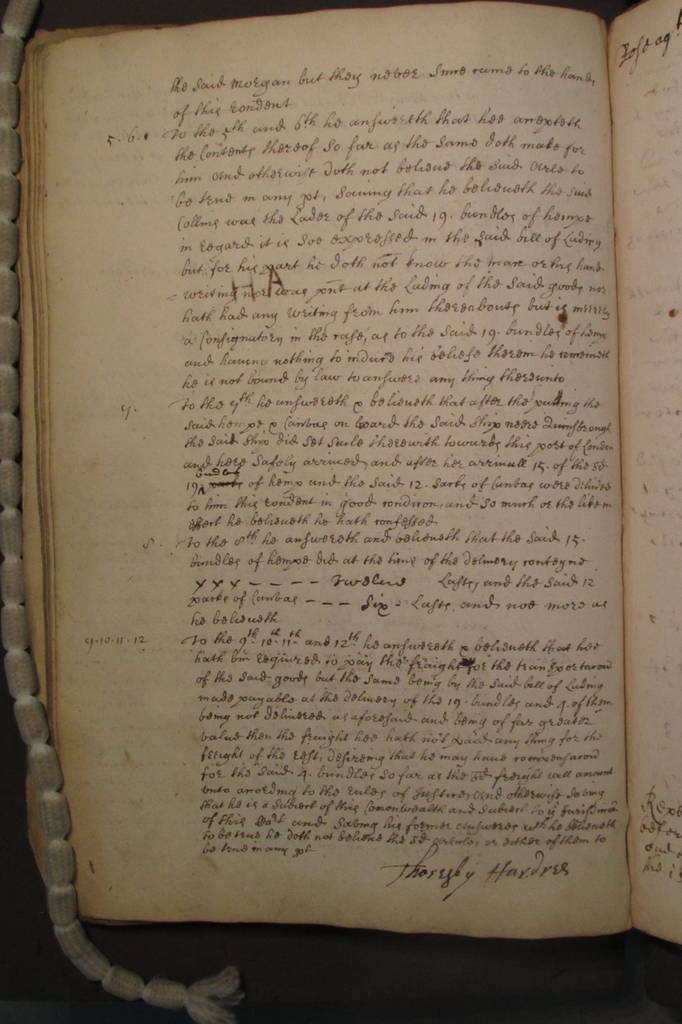 the said Morgan but they never since came to the hands
of this rondent
5. 6. To the 5th and 6th he answereth that hee accepteth
the Contents thereof so far as the same doth make for
him and otherwise doth not believe the said Arle to
be true in any pt, Saving that he believeth the said
Collins was the Lader of the said 19. bundles of hempe
in regard it is soe expressed in the said bill of Lading
but for his part he doth not know the man or his hand
writing nor was pnt at the Lading of the said goods nor
hath had any writing from him thereabouts but is meerely
a Consignatory in the case, as to the said 19. bundles of hemp
and having nothing to induce his beliefe therein he conceiveth
he is not bound by law to answere any thing thereunto
7. To the 7th he answereth & believeth that after the putting the
said hempe & Canvas on board the said Ship neere Quinsbrough
the said Ship did Set Saile therewith towards this port of London
and here Safely arrived, and after her arrivall 15. of the sd
19 bundles of hemp and the said 12. packs of Canvas were delivered
to him this rondent in good condicon, and so much or the like in
effect he believeth he hath confessed
8. To the 8th he answereth and believeth that the said 15.
bundles of hempe did at the time of the delivery conteyne
XXX - - - - - Twelve Lasts, and the said 12
packs of Canvas - - - Six - Lasts, and noe more as
he believeth
9.10.11.12 To the 9th 10th 11th and 12th he answereth & believeth that hee
hath bin required to pay the freight for the transportacon
of the said goods but the same being by the said bill of Lading
made payable at the delivery of the 19. bundles and 4. of them
being not delivered as aforesaid and being of far greater
value then the freight hee hath not paid any thing for the
freight of the rest, desireing that he may have compensacon
for the said 4. bundles so far as the sd freight will amount
unto according to the rules of Justice and otherwise Saving
that he is a Subiect of this Comonwealth and Subiect to ye Jurisdiccon
of this Cort and Saving his former answeres wch he believeth
to be true he doth not believe the sd arles or either of them to
be true in any pt.
Thoresby Hardres